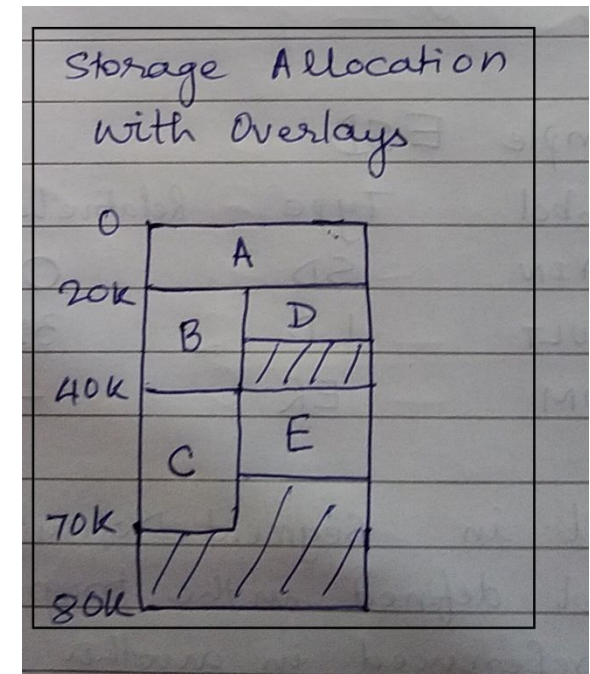 Storage Allocation
with Overlays
0
A
20K
B
D
40K
C
E
70K
80K